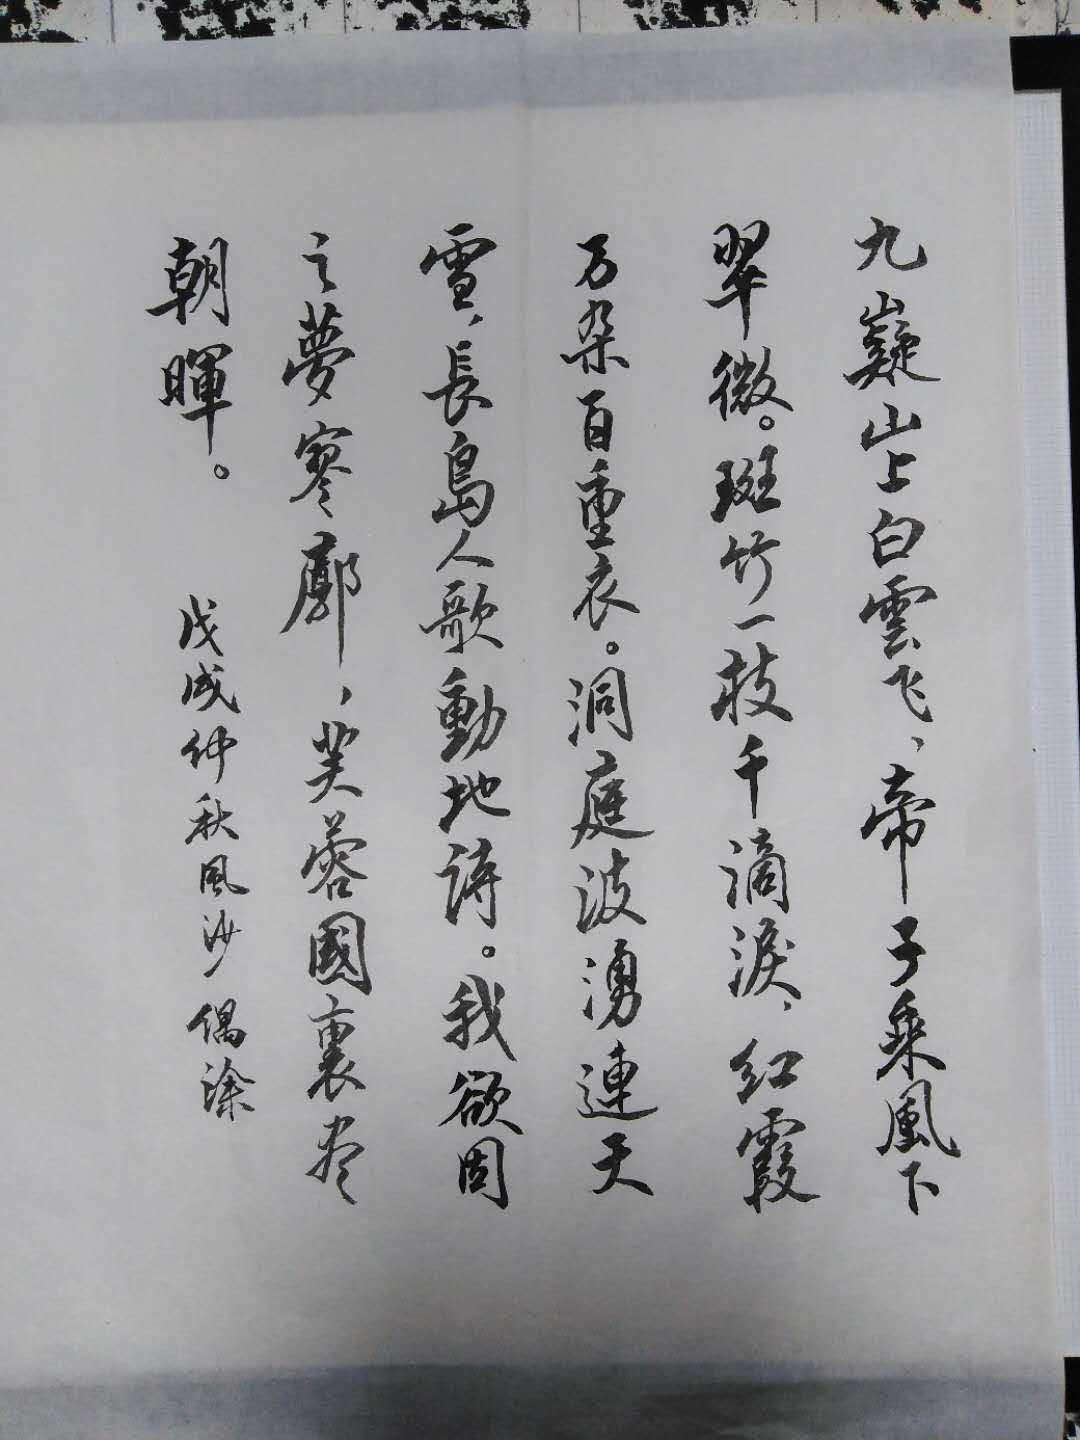 九嶷山上白雲飞、帝子乘風下
翠微。斑竹一枝千滴淚、红霞
万朵百重衣。洞庭波湧連天
雪、長島人歌動地詩。我欲因
之夢寥廓，芙蓉國裏尽
朝暉。
戊戌仲秋風沙偶涂